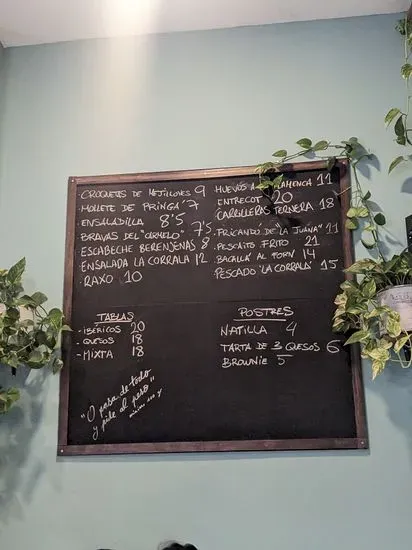 CROQUETAS DE MEJILLONES 9
·MOLLETE DE PRINGÁ 7
·ENSALADILLA 8'5
·BRAVAS DEL "ORMELO" 7'5
·ESCABECHE BERENJENAS 8
·ENSALADA LA CORRALA 12
·RAXO 10
HUEVOS A LAMENCA 11
ENTRECOT 20
CARRILLERAS TERNERA 18
·FRICANDO DE "LA JUANA" 11
·PESCAITO FRITO 21
BACALLÀ AL FORN 14
·PESCADO 'LA CORRALA' 15
TABLAS
- IBÉRICOS 20
- QUESOS 18
- MIXTA 18
"O pasa de todo
y pide al peso"
POSTRES
NATILLA 4
TARTA DE 3 QUESOS 6
BROWNIE 5